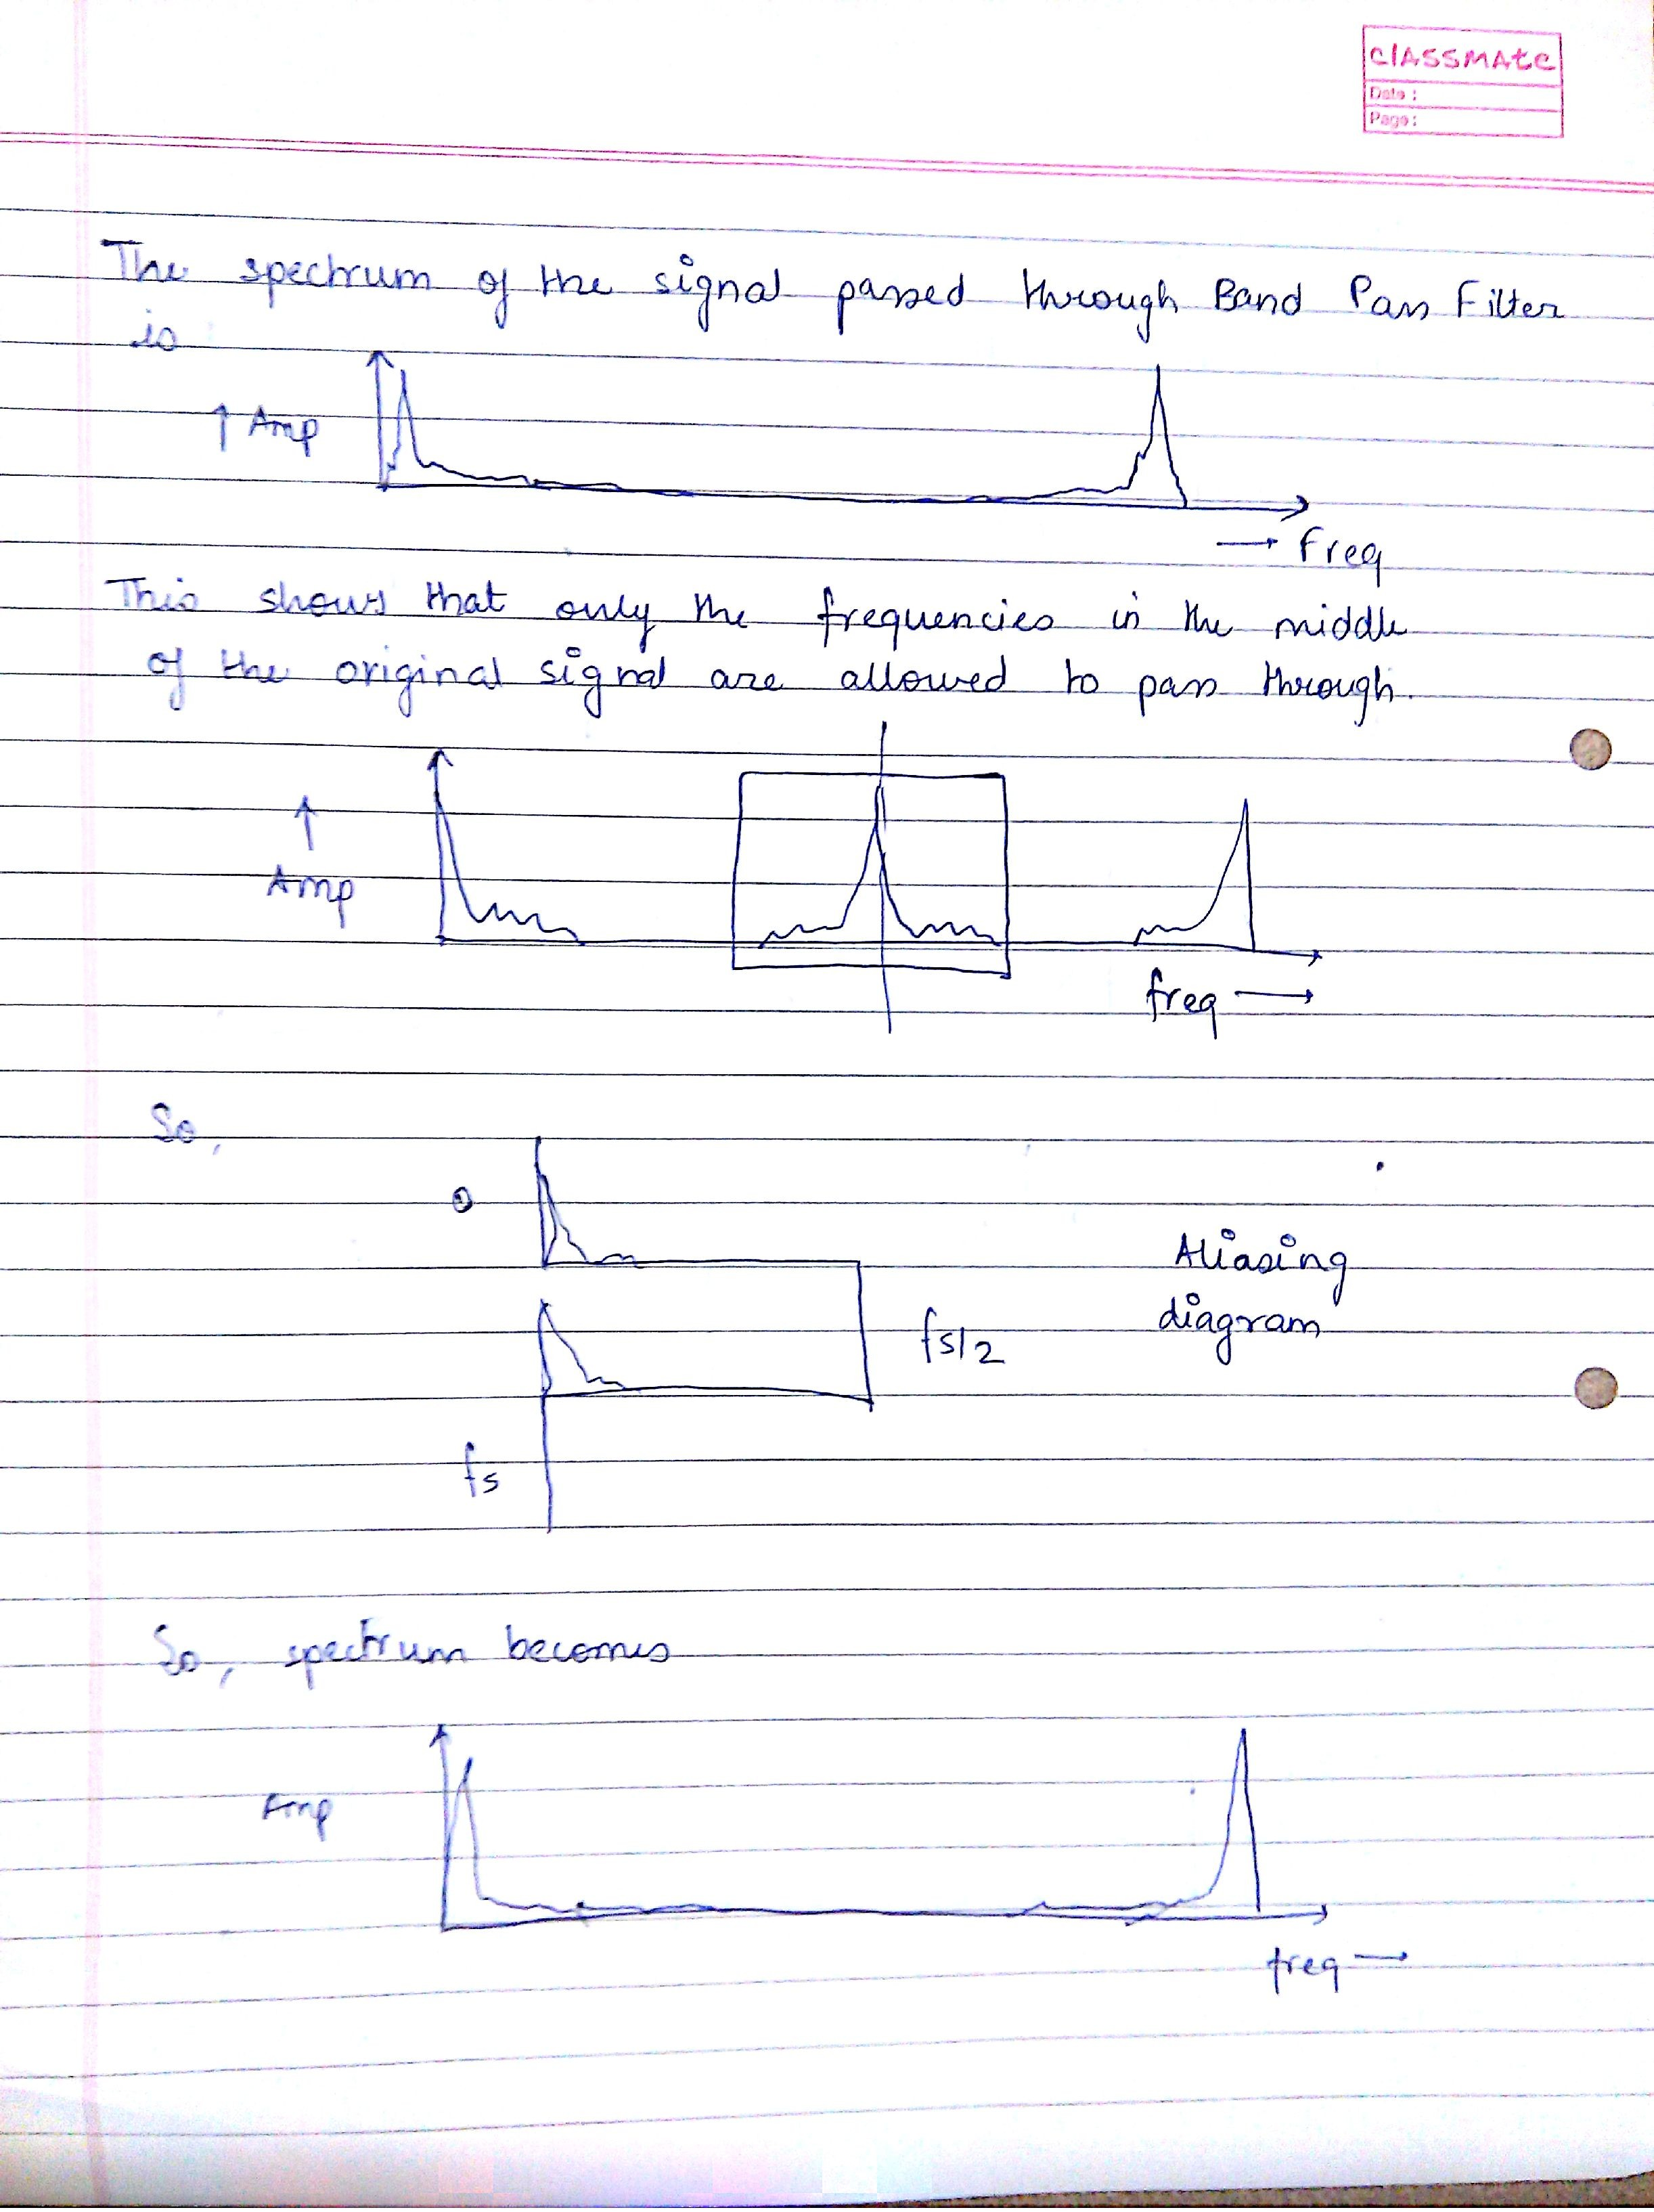 classmate
Date :
Page :
The spectrum of the signal passed through Band Pass Filter
is
↑ Amp
→ Freq
This shows that only the frequencies in the middle
of the original signal are allowed to pass through.
↑
Amp
freq →
So,
0
Aliasing
diagram
fs/2
fs
So, spectrum becomes
Amp
freq →